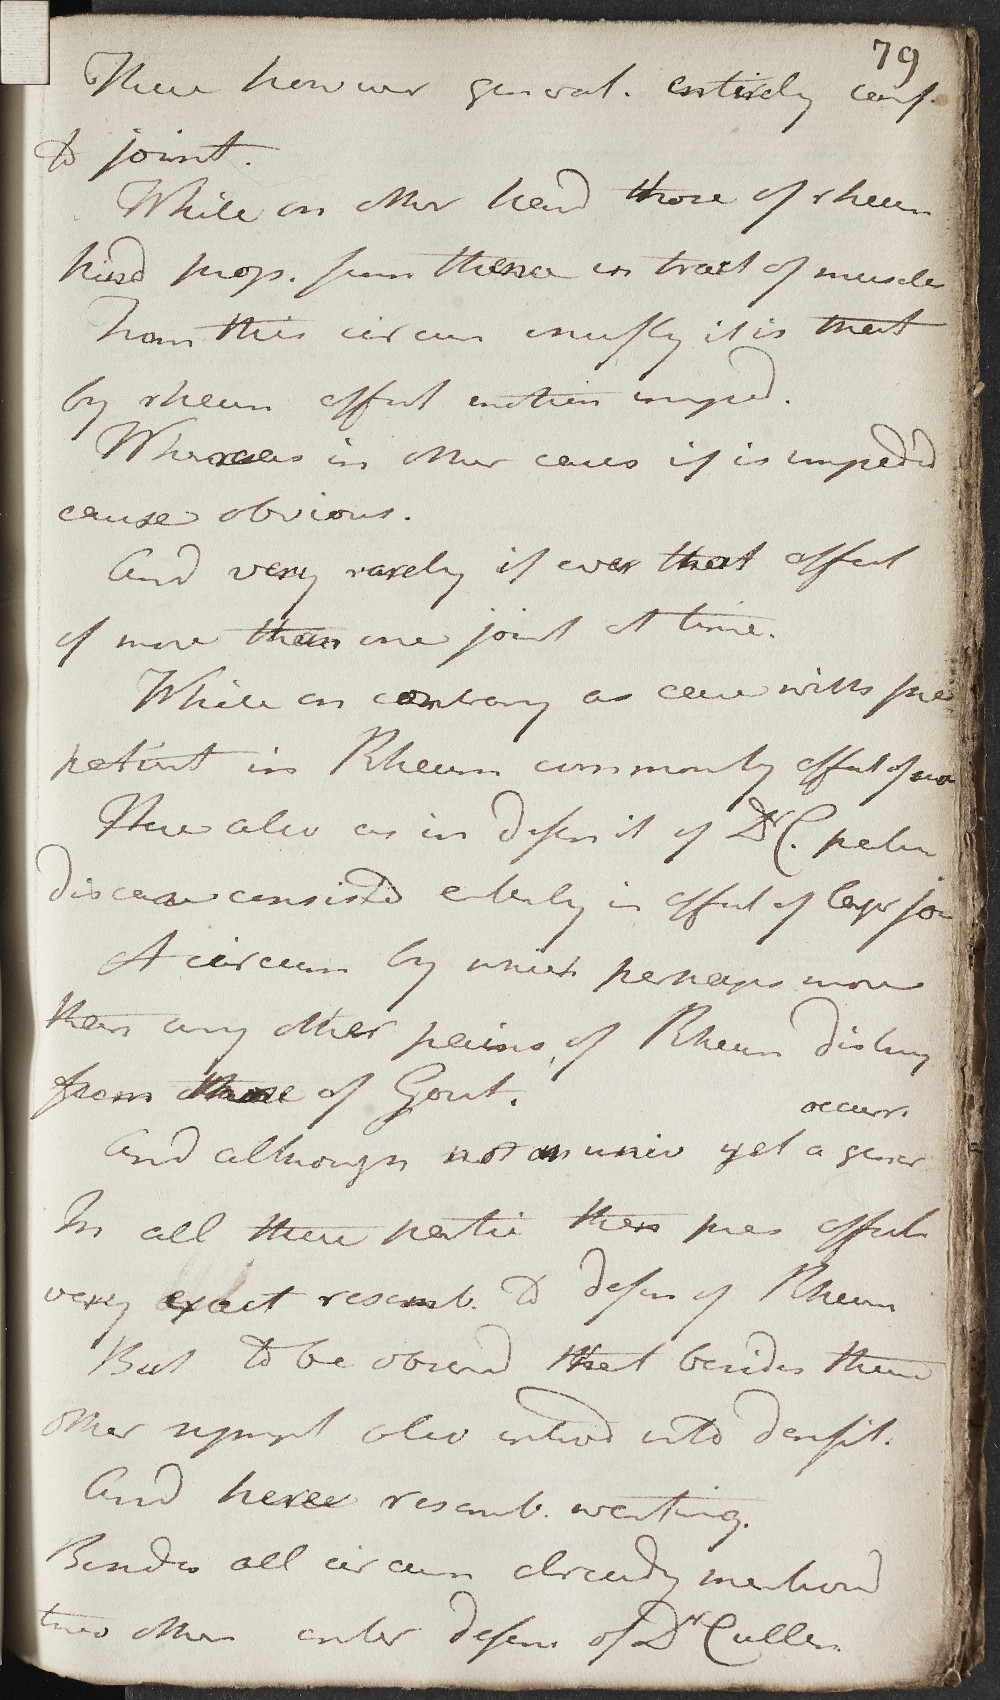 79
These however general. entirely conf.
to joint.
While on other hand those of rheum
kind prop. from thence in tract of muscles
From this circum chiefly it is that
by rheum affect motion imped.
Whereas in other cases if is imped'd
cause obvious.
And very rarely if ever that affect
of more than one joint at time.
While on contrary as case with pre
patint in Rheum commonly affect of mo
Here also as in defin it of Dr C. patin
disease consist'd enterly in affect of larger join
A circum by which perhaps more
than any other pains of Rheum disting
from those of Gout.
occurr.
And although not an univ yet a gener
In all these partic then pres affect
very exact resemb. to defin of Rheum
But to be observd that besides these
other sympt also introd into definit.
And here resemb. wanting.
Besides all circum already mentiond
two other enter defin of Dr Cullen.